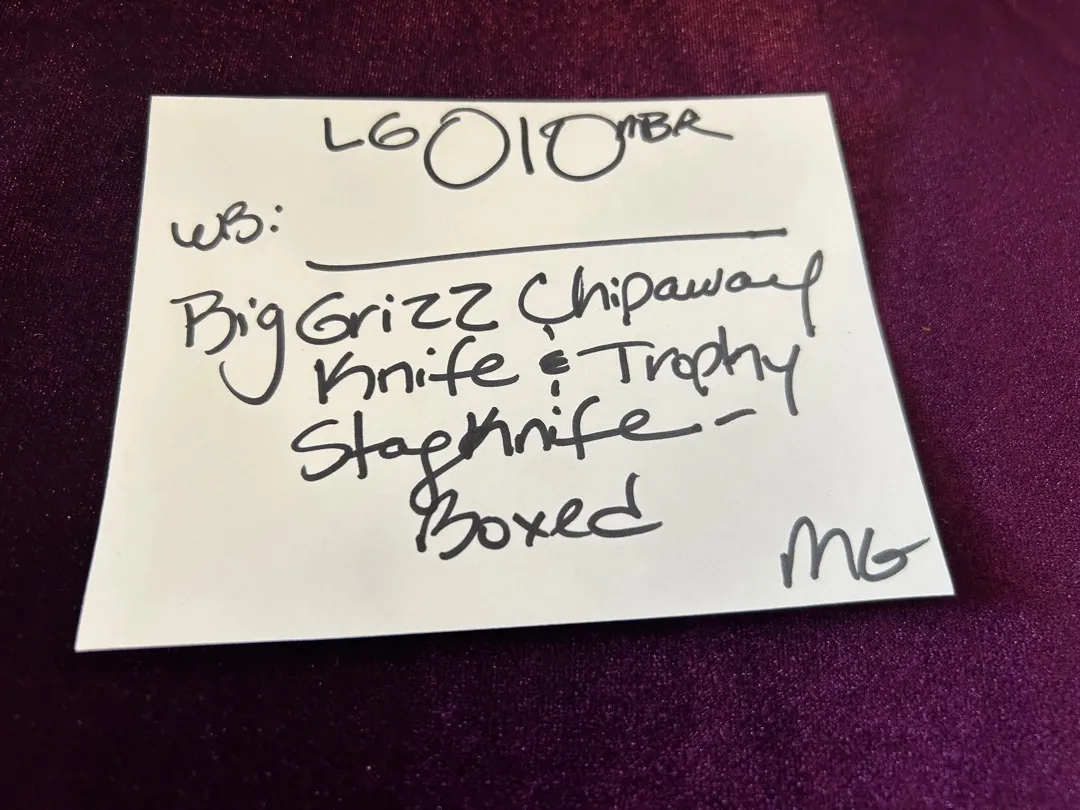 LG 010 MBR
WB:
Big Grizz Chipaway
Knife & Trophy
Stag Knife -
Boxed
MG